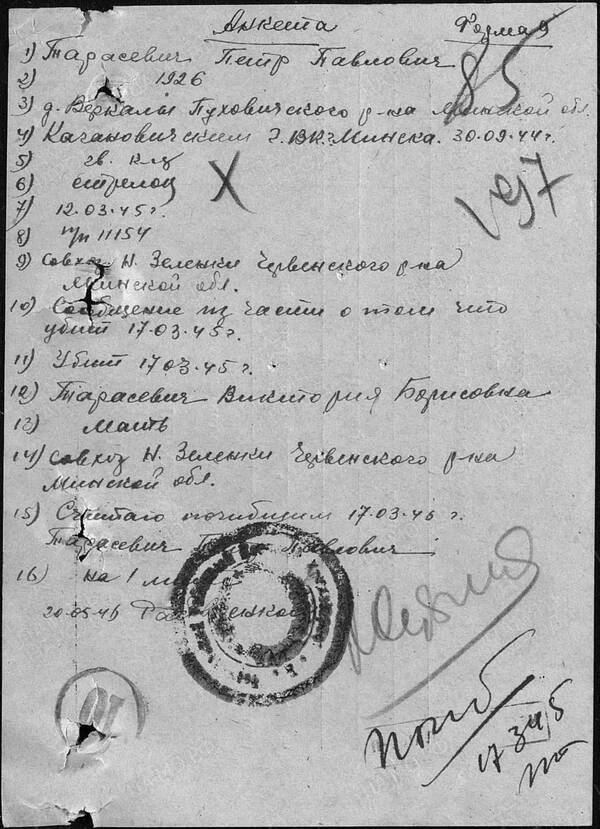 Анкета Форма 9
85
1) Тарасевич Петр Павлович
2) 1926
3) д. Веркалы Пуховичского р-на Минской обл.
4) Кагановичским Г.ВК. Минска. 30.09.44 г.
5) гв. к-ц
6) стрелок
Х
7) 12.03.45 г.
8) п/п 11154
9) Совхоз Н. Зеленки Червенского р-на
Минской обл.
10) Сообщение из части о том что
убит 17.03.45 г.
11) Убит 17.03.45 г.
12) Тарасевич Виктория Борисовна
13) мать
14) Совхоз Н. Зеленки Червенского р-на
Минской обл.
15) Считаю погибшим 17.03.45 г.
Тарасевич Петр Павлович
16) на 1
20.05.46
погиб
17 3 45
10